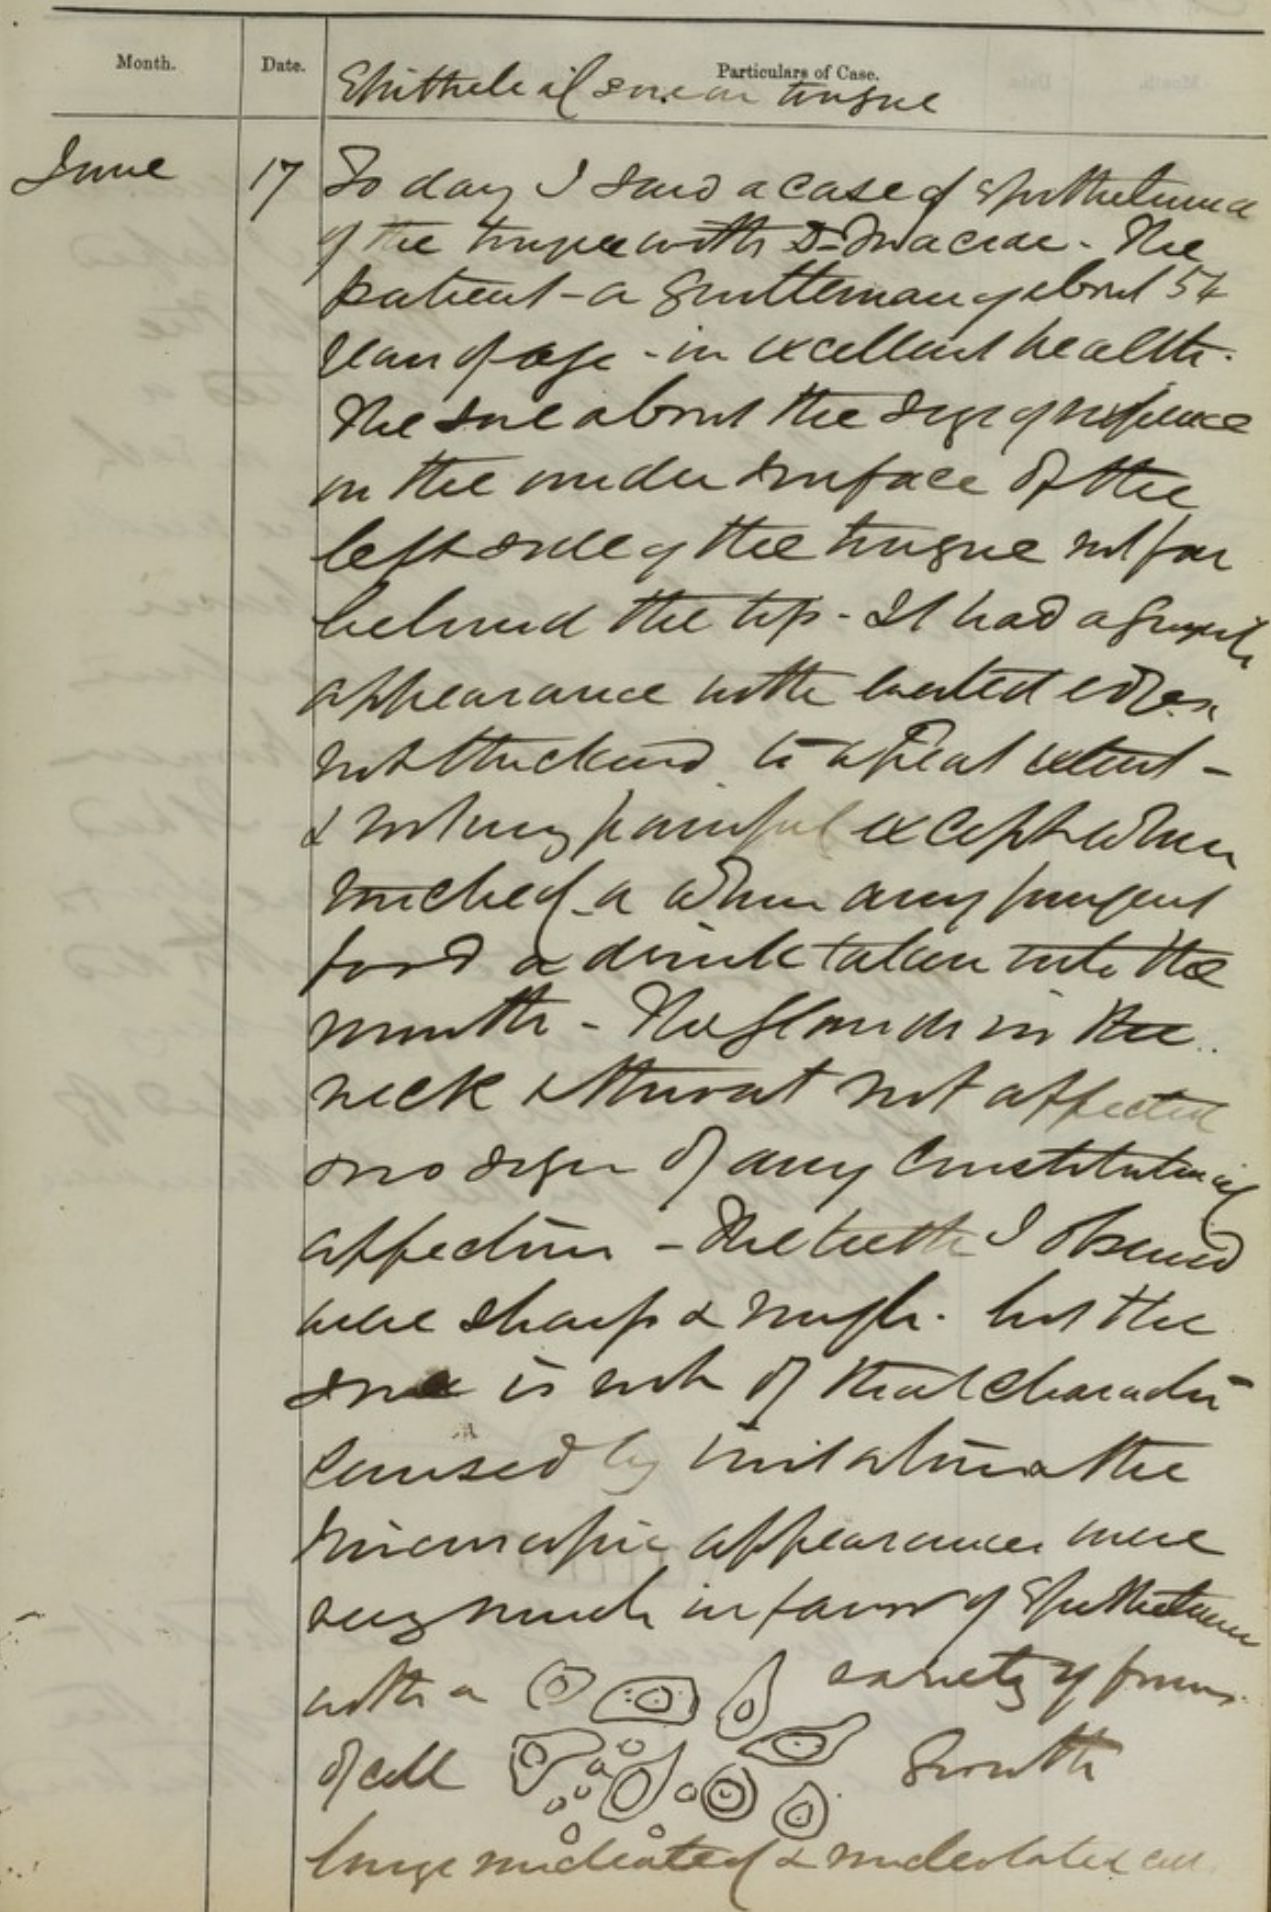 Month. Date. Particulars of Case.
Epithelial sore on tongue
June 17 To day I saw a case of Epithelioma
of the tongue with Dr Macrae - The
patient - a gentleman of about 54
years of age - in excellent health.
The sore about the size of sixpence
on the under surface of the
left side of the tongue not far
behind the tip - It had a
appearance with everted edges
not thickened to a great extent -
& not very painful except when
touched or when any pungent
food or drink taken into the
mouth - The glands in the
neck & throat not affected
& no sign of any Constitutional
affection - The teeth I observed
were sharp & rough. but the
sore is not of that character
caused by irritation & the
microscopic appearances were
very much in favor of Epithelioma
with a variety of forms
of cell growth
large nucleated & nucleolated cells